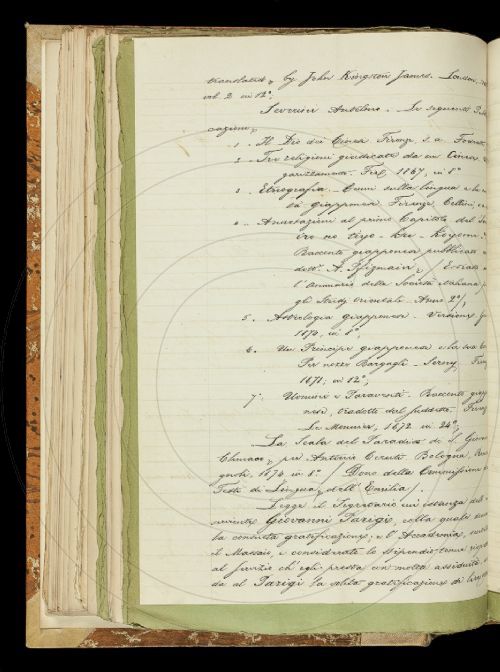 translated by John Kingston James. London,
vol 2 in 12°.
Severini Antelmo. Le seguenti
cazioni,
1. Il Dio dei Cinesi. Firenze, s. a.
2. Tre religioni giudicate da un Cinese
Fir.e 1867, in 8°
3. Etnografia. Cenni sulla lingua e la
tà giapponese. Firenze, Cellini,
4. Annotazioni al primo Capitolo del
Racconto giapponese pubblicato
dott. A. Pfizmaier,
l'Annuario della Società italiana
gli Studj orientali. Anno 2°),
5. Astrologia giapponese. Versione
1874, in 8°,
6. Un Principe giapponese e la sua
Per nozze Bargagli
1871, in 12°,
7. Uomini e Paraventi. Racconto
nese, tradotto dal suddetto.
Le Monnier, 1872 in 24°,
La Scala del Paradiso di S. Giovanni
Climaco, per Antonio Ceruti. Bologna,
gnoli, 1874 in 8° (Dono della Commissione
Testi di Lingua, dell'Emilia).
Legge il Segretario un'istanza del
Giovanni Parigi, colla quale
la consueta gratificazione; e l'Accademia,
il Massaio, e considerato lo stipendio tenue
al servizio ch'egli presta con molta assiduità
da al Parigi la solita gratificazione di lire